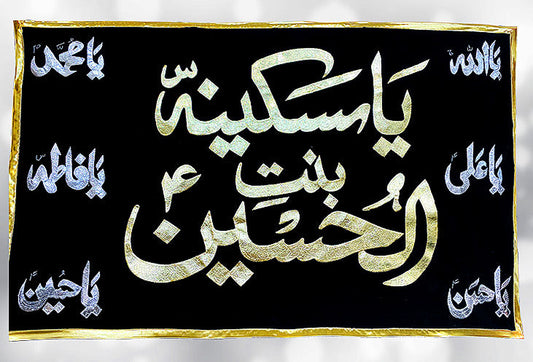 یا اللہ
یا علی
یا حسن
یا سکینہ س
بنتِ
الحُسین ع
یا محمد
یا فاطمہ
یا حسین